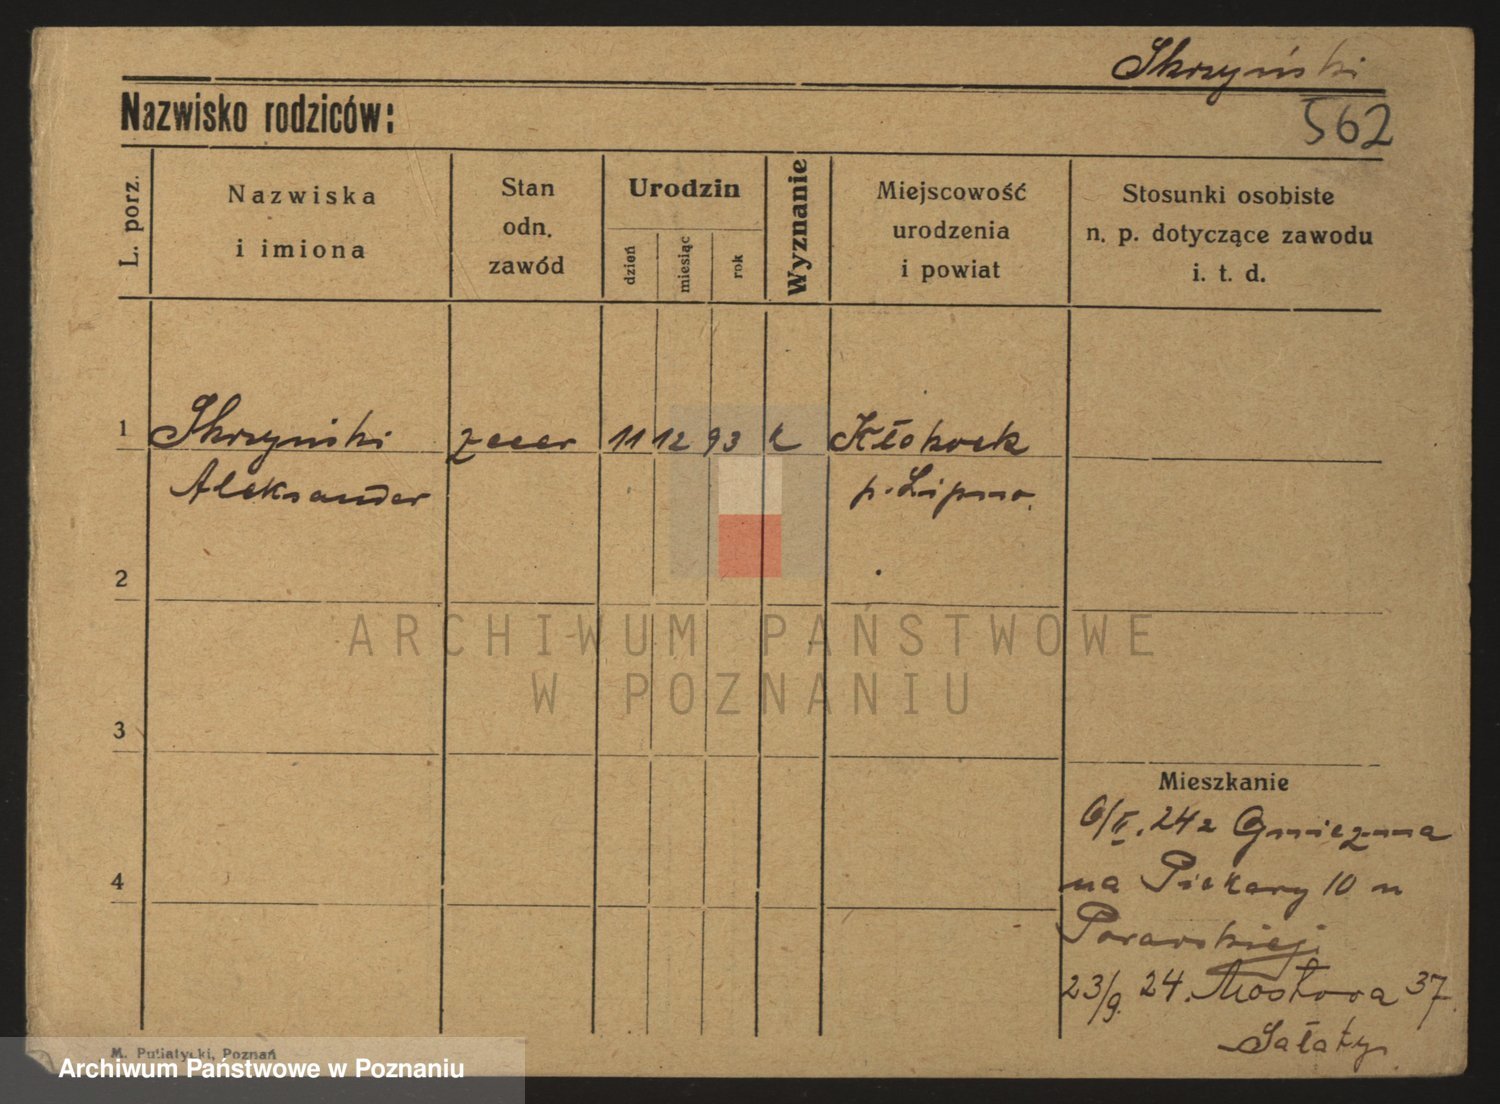 Skrzyński
Nazwisko rodziców:
562
L. porz.
Nazwiska
i imiona
Stan
odn.
zawód
Urodzin
dzień
miesiąc
rok
Wyznanie
Miejscowość
urodzenia
i powiat
Stosunki osobiste
n. p. dotyczące zawodu
i. t. d.
1 Skrzyński zecer 11 12 93 k Kłokock
Aleksander p. Lipno.
2
ARCHIWUM PAŃSTWOWE
W POZNANIU
3
Mieszkanie
6/II. 24 z Gniezna
4
na Piekary 10 u
23/9. 24. Mostowa 37
Sałaty
M. Putiatycki, Poznań
Archiwum Państwowe w Poznaniu